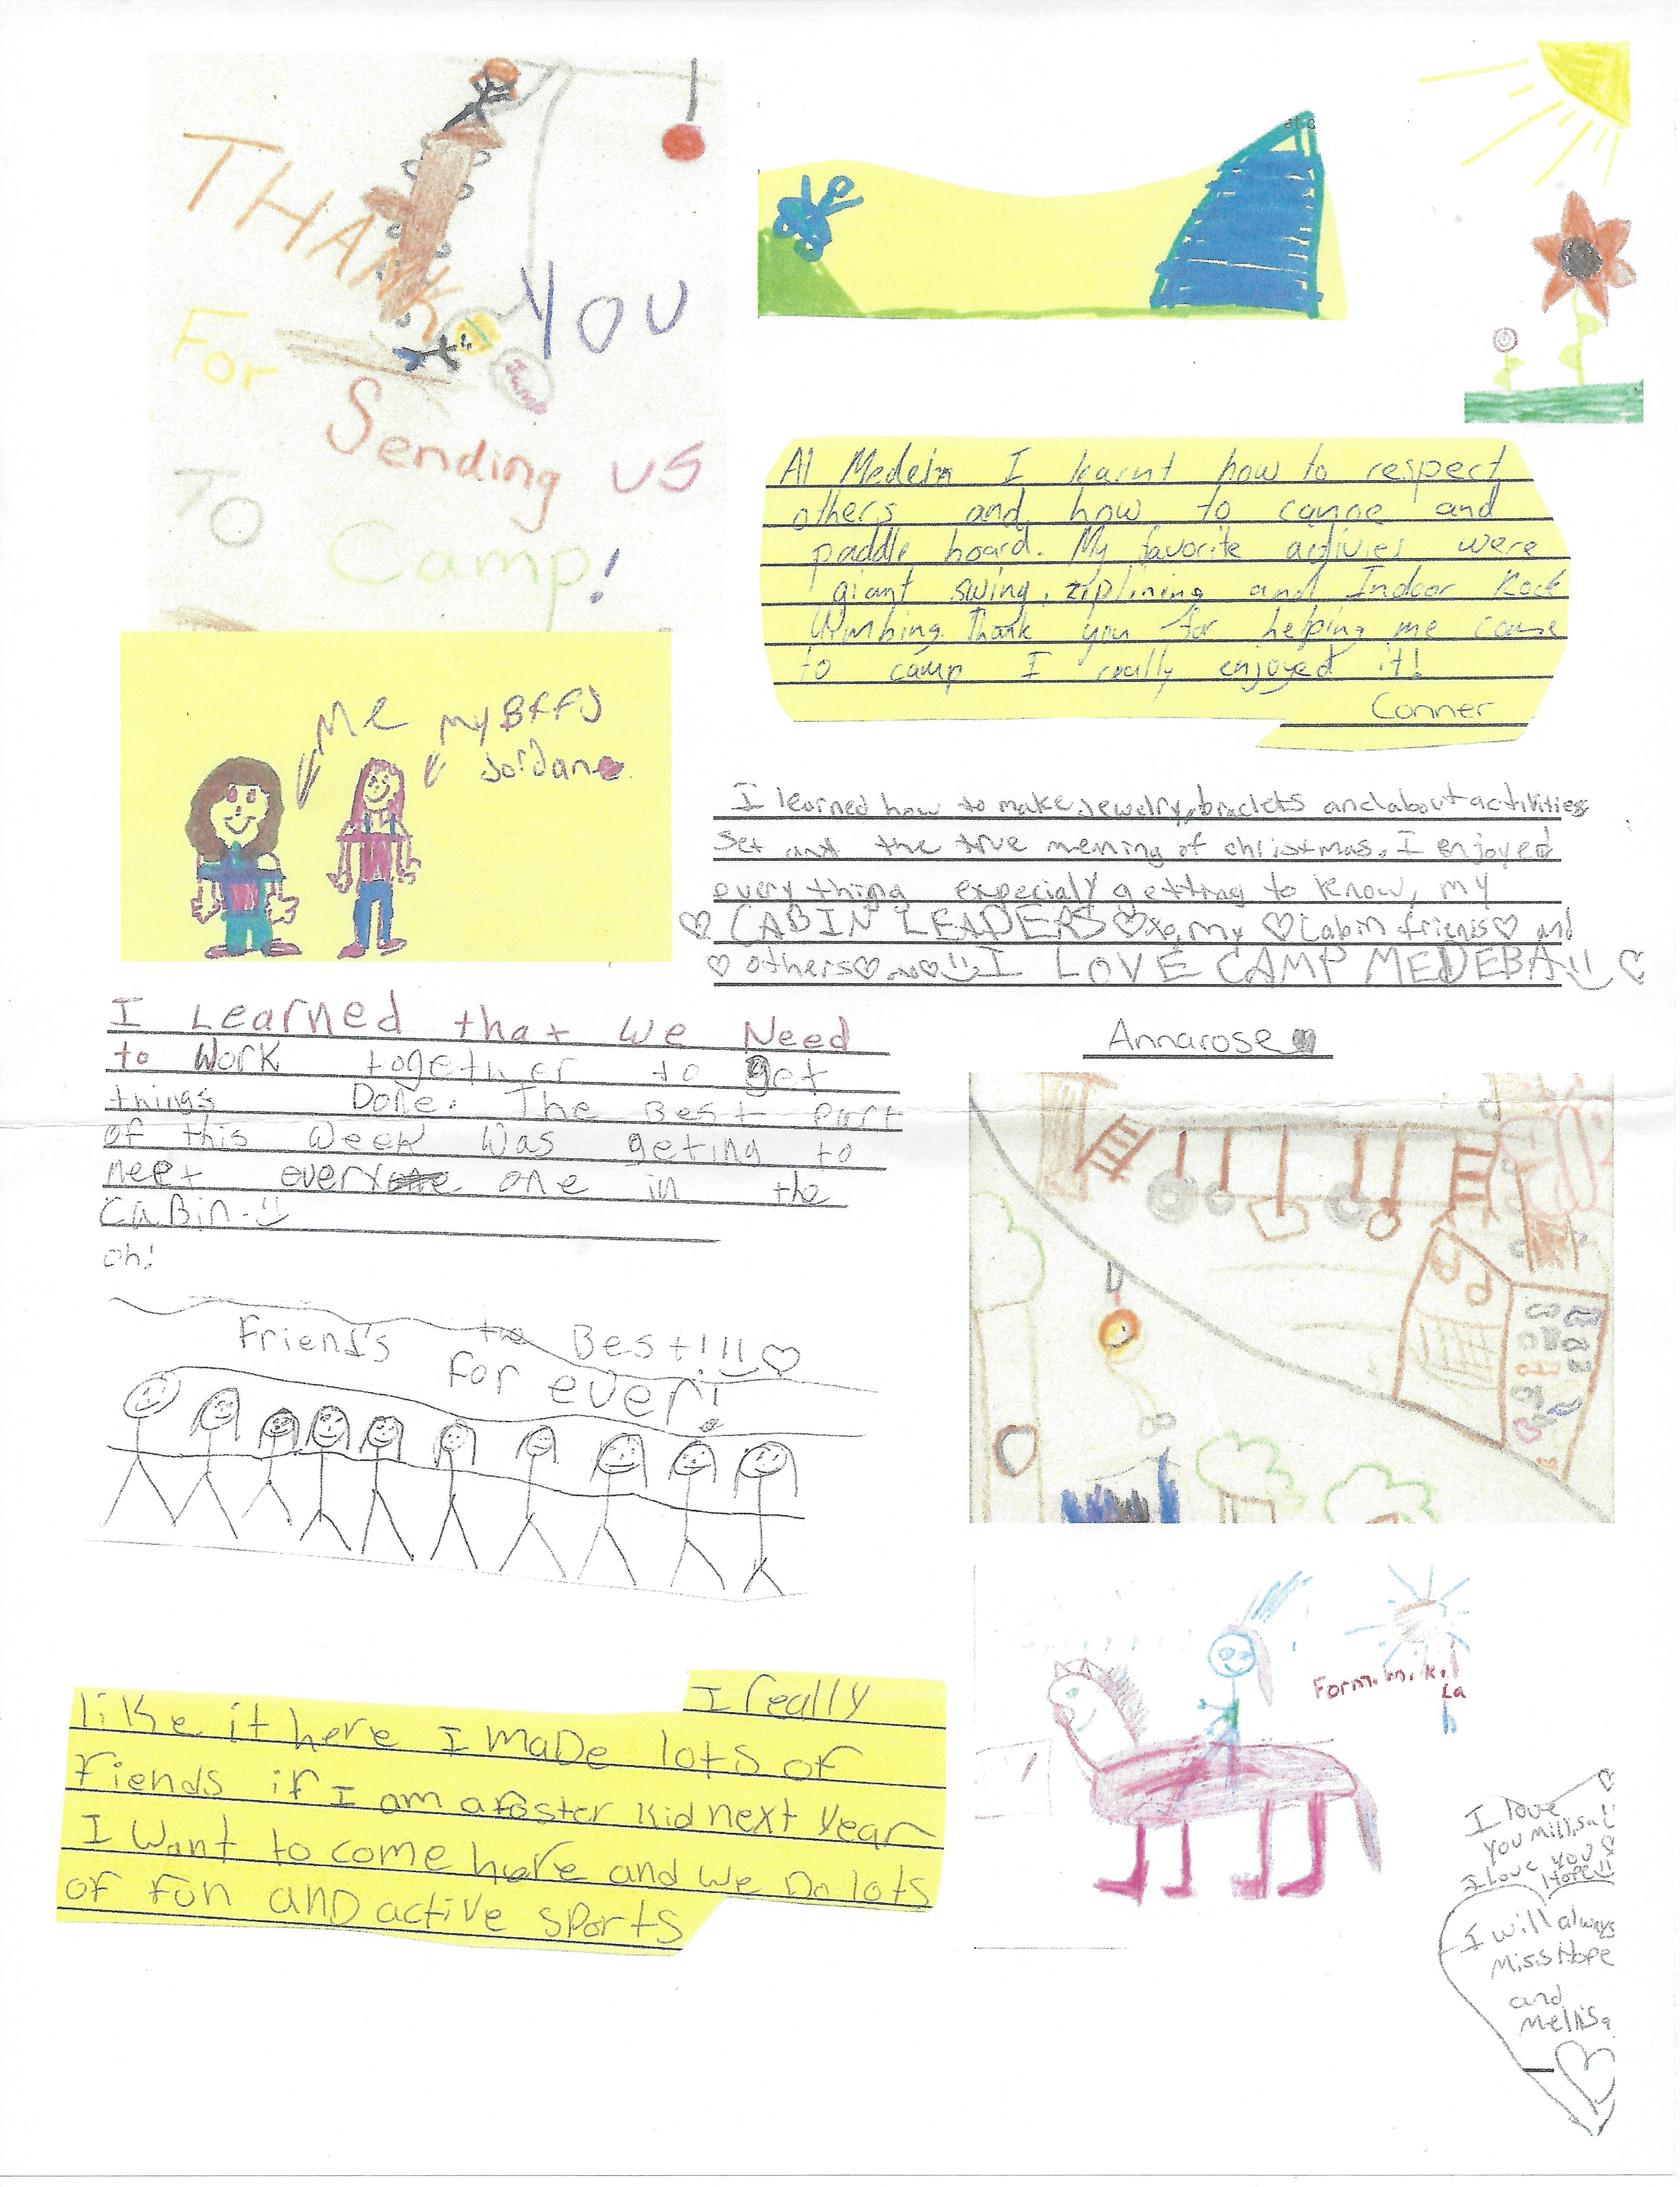 THANK
YOU
For
Jump
Sending us
To
Camp!
et c
At Medeba I learnt how to respect
others and how to canoe and
paddle board. My favorite activies were
giant swing, ziplining and Indoor Rock
climbing. Thank you for helping me come
to camp I really enjoyed it!
Conner
Me my BFFJ
Jordan
I learned how to make Jewelry, braclets and about activities
Set and the true mening of christmas. I enjoyed
every thing expecialy getting to know, my
♡ CABIN LEADERS ♡ my ♡ Cabin friends ♡ and
♡ others ♡ I LOVE CAMP MEDEBA!! ♡
Annarose
I Learned that We Need
to Work together to get
things Done. The Best Part
of this Week Was geting to
meet every one in the
CaBin. !!
oh!
Friends the Best!!!! ♡
For ever!
From miki
La
I really
like it here I maDe lots of
fiends if I am a foster kid next year
I Want to come here and we Do lots
of fun anD active sports
I love
you Millisa!!
I love you
Hope!!
I will always
Miss Hope
and
Mellisa